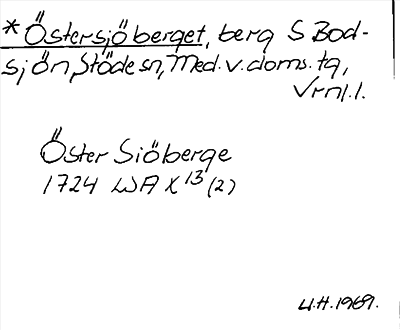 *Östersjöberget, berg S Bod-
sjön, Stöde sn, Med.v.doms.tg,
Vrnl.l.
Öster Siöberge
1724 LSA X 13 (2)
U.H. 1969.